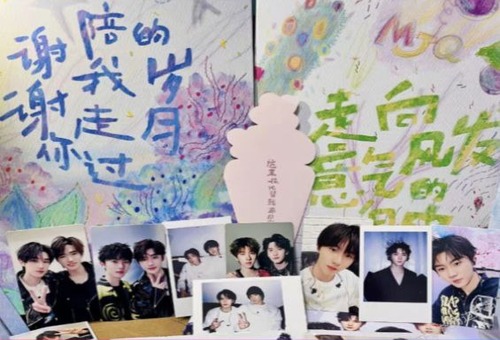 谢谢你
陪我走过
的岁月
MJQ
走向
意气风发的